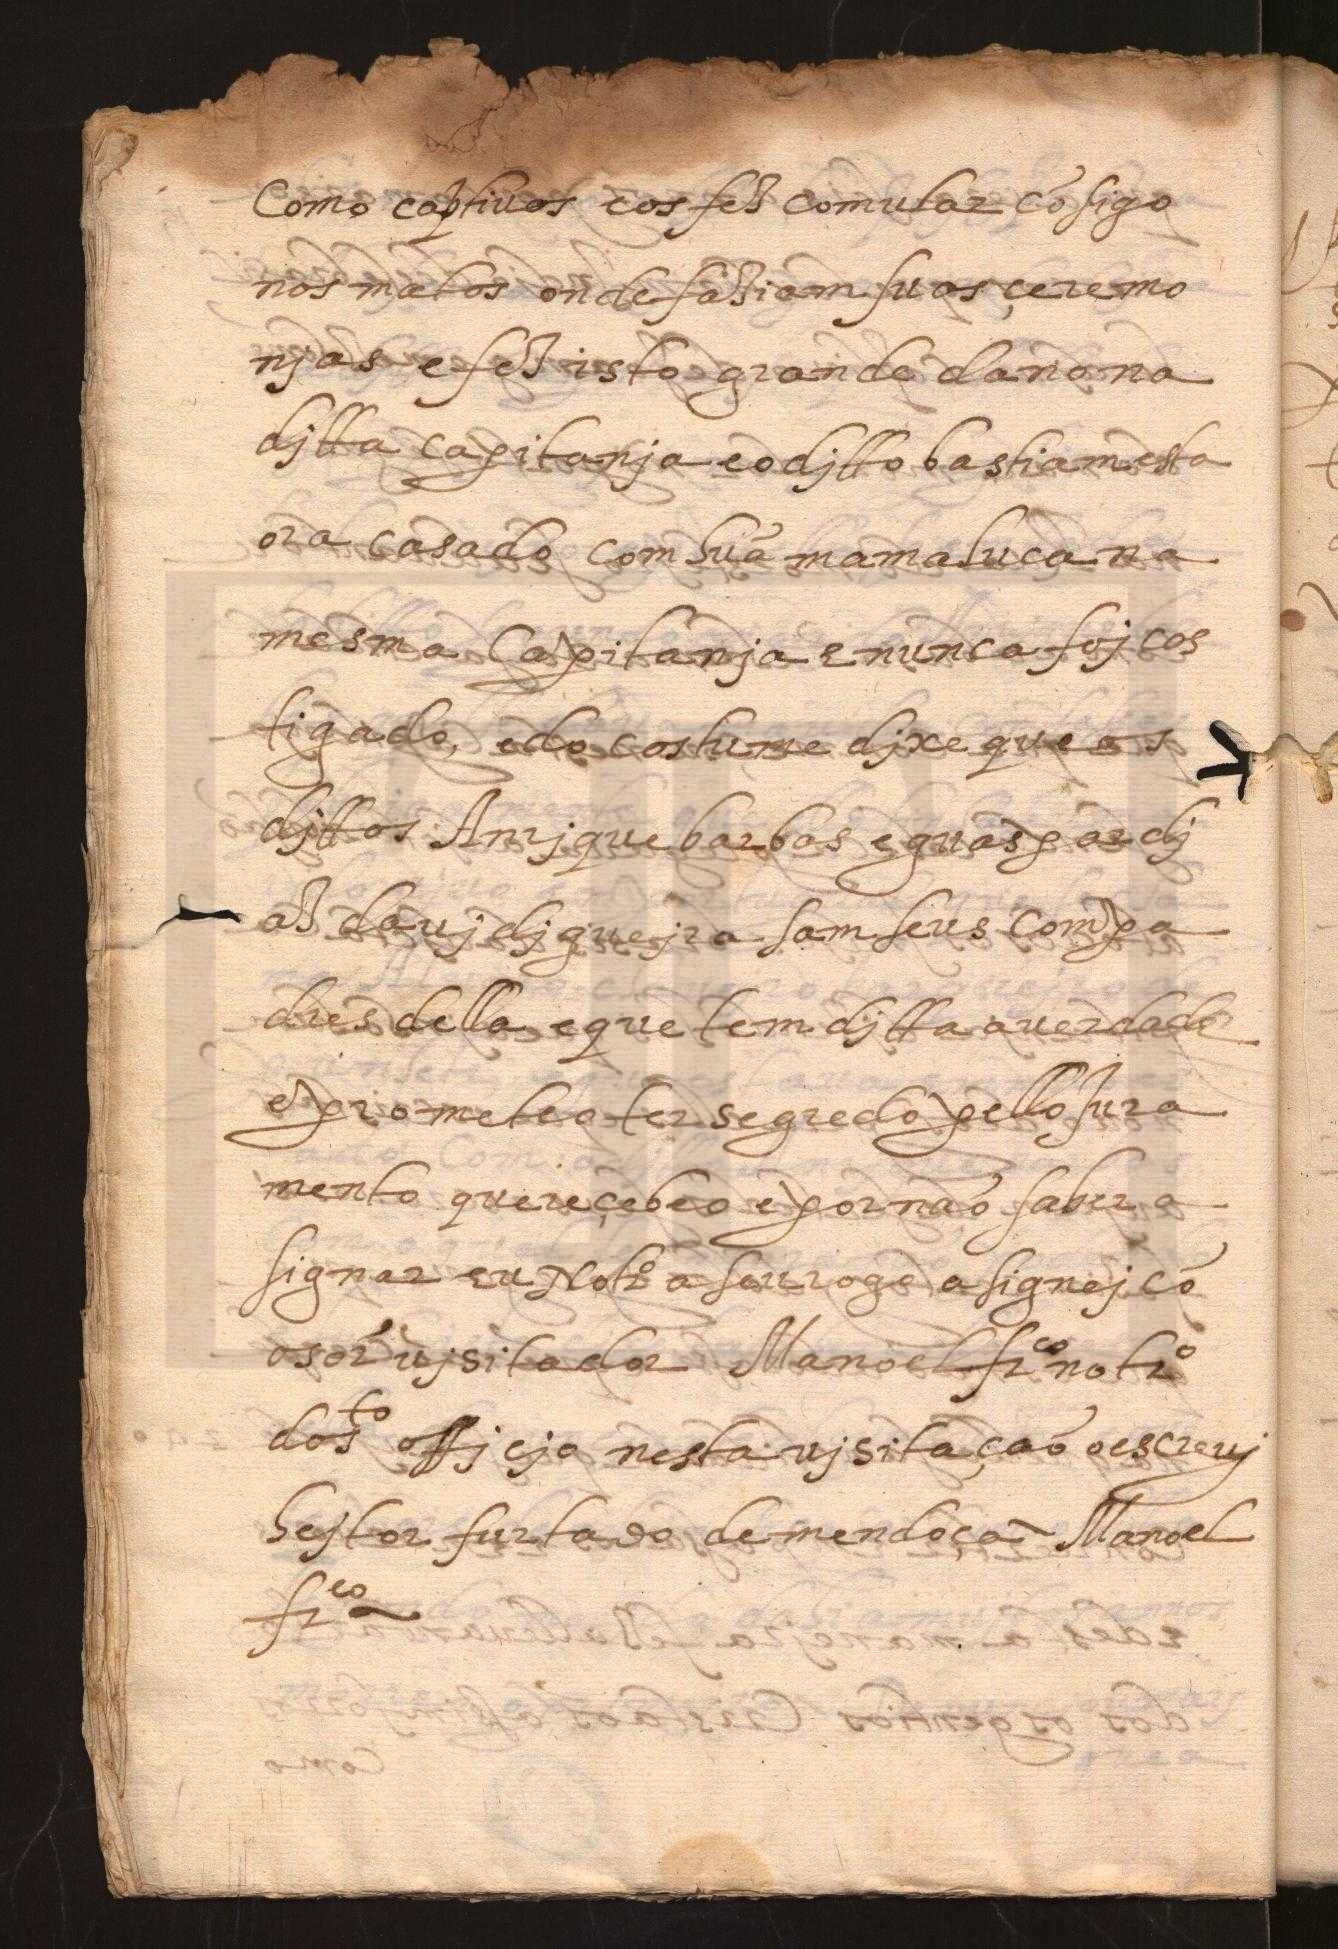 Como captivos eos fez comutar cõsigo
nos matos onde faziam suas çeremo
njas e fez isto grande dano na
djtta capitanja eo djtto bastiam esta
ora casado com huã mamaluca na
mesma Capitanja e nunca foj cas
tigado, e do costume djxe que os
djttos Anrjque barbas e guaspar dj
az da vjdjgueira sam seus compa
dres della e que tem djtta averdade
e prometeo ter segredo pello Jura
mento que reçebeo e por não saber a
signar eu Notro a seu rogo asignej cõ
o sõr vjsitador Manoel frco notro
do sto offjcjo nesta vjsitação o escrevj
hejtor furtado de mendoça Manoel
frco